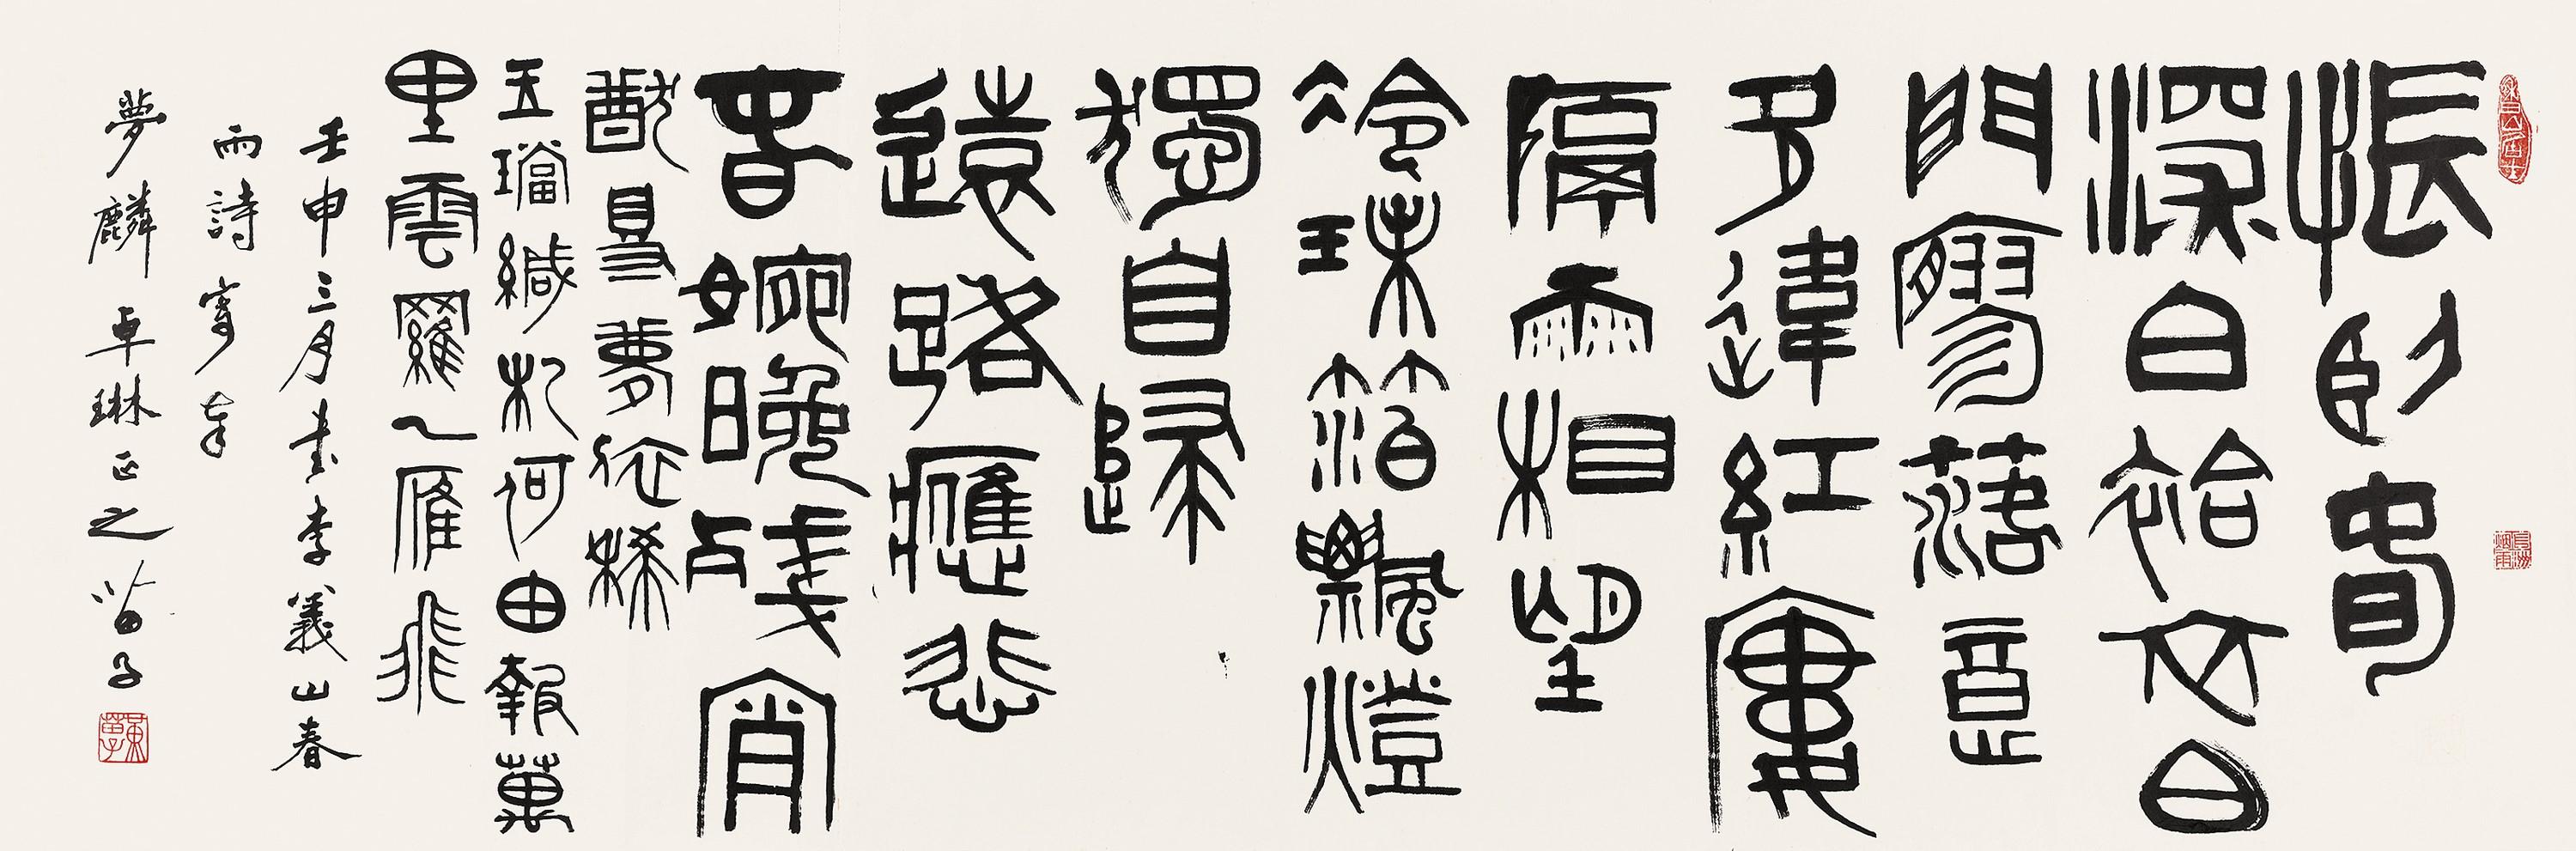 悵臥春
深白袷衣白
門寥落意
多違紅樓
隔雨相望
冷珠箔飄燈
獨自歸
遠路應悲
春婉晚殘宵
猶得夢依稀
玉璫緘札何由報萬
里雲羅一雁飛
壬申三月書李義山春
雨詩寄奉
夢麟卓琳正之苗子